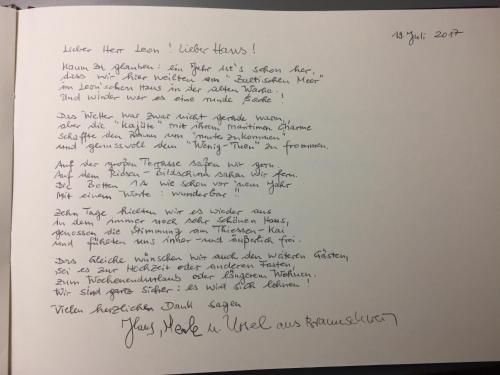 19. Juli 2017
Lieber Herr Leon! Lieber Hans!
Kaum zu glauben: ein Jahr ist's schon her,
dass wir hier weilten am "Baltischen Meer"
im Leon'schen Haus in der alten Wache.
Und wieder war es eine runde Sache!
Das Wetter war zwar nicht gerade warm,
aber die "Kajüte" mit ihrem maritimen Charme
schaffte den Rahmen um "runterzukommen"
und genussvoll dem "Wenig-Tuen" zu frommen.
Auf der großen Terrasse saßen wir gern.
Auf dem Riesen-Bildschirm sahen wir fern.
Die Betten 1A wie schon vor 'nem Jahr
Mit einem Worte: wunderbar!!
Zehn Tage hielten wir es wieder aus
in dem immer noch sehr schönen Haus,
genossen die Stimmung am Thiessen-Kai
und fühlten uns inner- und äußerlich frei.
Das Gleiche wünschen wir auch den weiteren Gästen,
sei es zur Hochzeit oder anderen Festen,
zum Wochenendurlaub oder längerem Wohnen.
Wir sind ganz sicher: es wird sich lohnen!
Vielen herzlichen Dank sagen
Hans, u Ursel aus Braunschweig